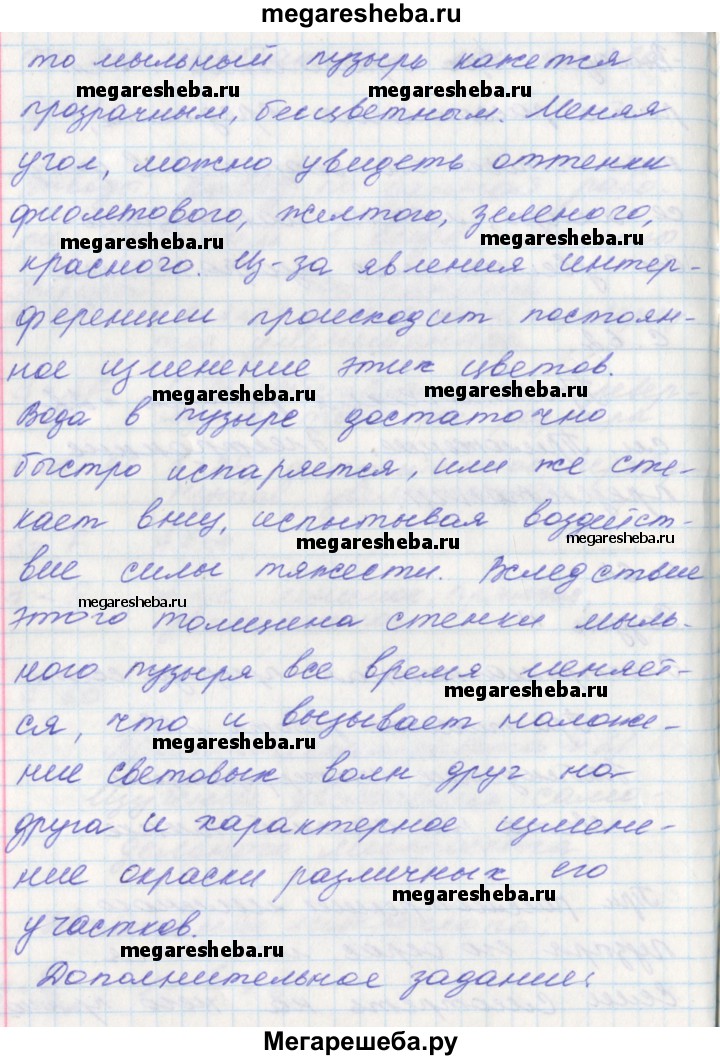 megaresheba.ru
то мыльный пузырь кажется
megaresheba.ru megaresheba.ru
прозрачным, бесцветным. Меняя
угол, можно увидеть оттенки
фиолетового, желтого, зеленого,
megaresheba.ru megaresheba.ru
красного. Из-за явления интер-
ференции происходит постоян-
ное изменение этих цветов.
megaresheba.ru megaresheba.ru
Вода в пузыре достаточно
быстро испаряется, или же сте-
кает вниз, испытывая воздейст-
megaresheba.ru megaresheba.ru
вие силы тяжести. Вследствие
megaresheba.ru
этого толщина стенки мыль-
ного пузыря все время меняет-
megaresheba.ru
ся, что и вызывает наложе-
megaresheba.ru
ние световых волн друг на
друга и характерное измене-
ние окраски различных его
megaresheba.ru
участков.
megaresheba.ru
Дополнительное задание:
Мегарешеба.ру